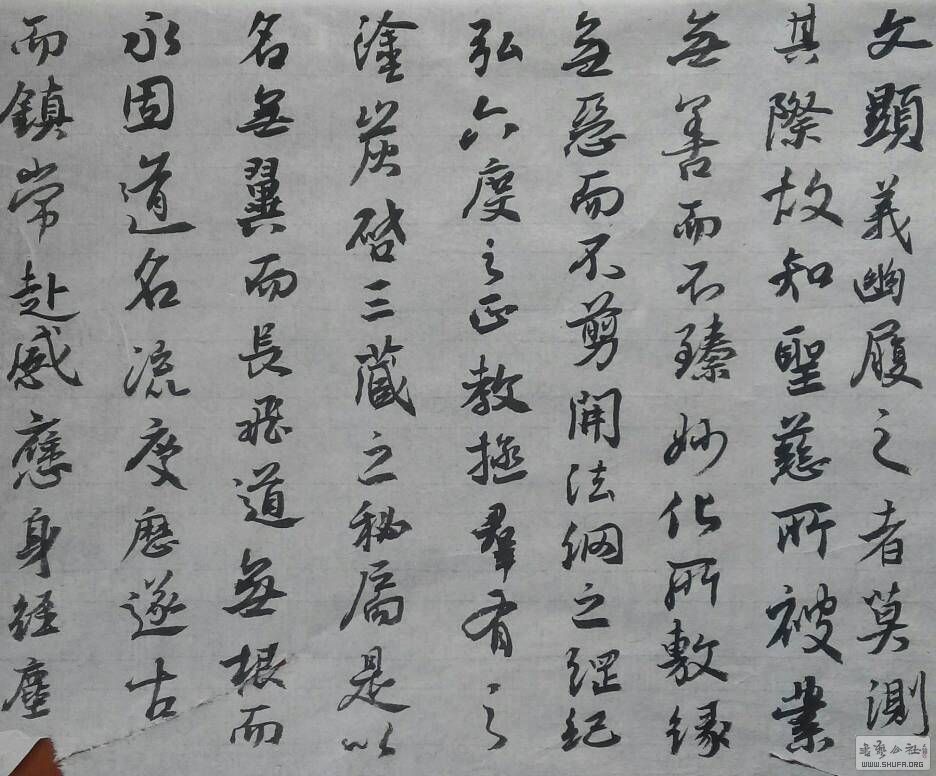 文顯義幽履之者莫測
其際故知聖慈所被業
無善而不臻妙化所敷緣
無惡而不剪開法網之綱紀
弘六度之正教拯羣有之
塗炭啓三藏之秘扃是以
名無翼而長飛道無根而
永固道名流慶歷遂古
而鎮常赴感應身經塵
書藝公社
WWW.SHUFA.ORG